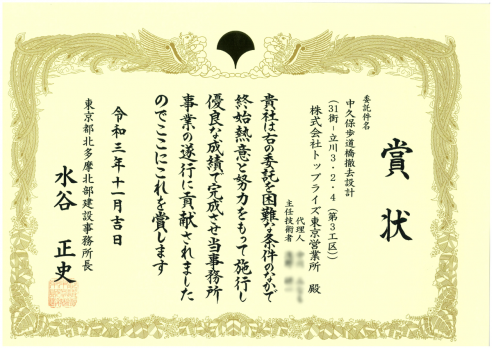 賞状
委託件名
中久保歩道橋撤去設計
(31街－立川3・2・4(第3工区))
株式会社トップライズ東京営業所 殿
代理人
主任技術者
貴社は右の委託を困難な条件のなかで
終始熱意と努力をもって施行し
優良な成績で完成させ当事務所
事業の遂行に貢献されました
のでここにこれを賞します
令和三年十一月吉日
東京都北多摩北部建設事務所長
水谷 正史